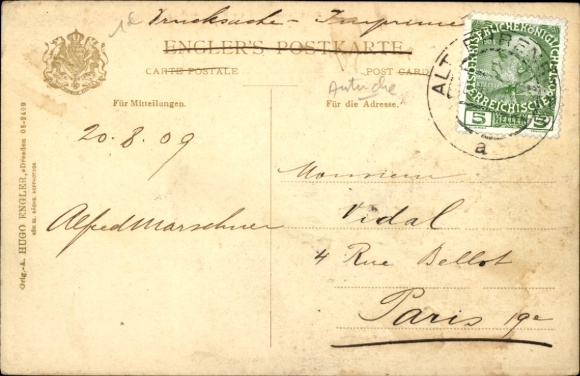 Drucksache - Imprimé
ENGLER'S POSTKARTE
CARTE POSTALE
POST CARD
Für Mitteilungen.
Für die Adresse.
Autriche
20.8.09
Alfred Marschner
Monsieur
Vidal
4 Rue Bellot
Paris 19e
Orig.-A. HUGO ENGLER, Dresden 05-2409
KAISERLICHE KÖNIGLICHE
ÖSTERREICHISCHE
5 HELLER 5
ALT
a